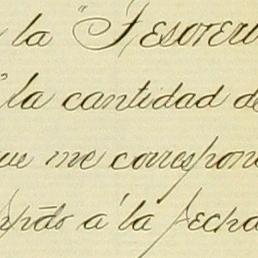 la "Tesorer
" la cantidad de
ue me correspon
á la fecha